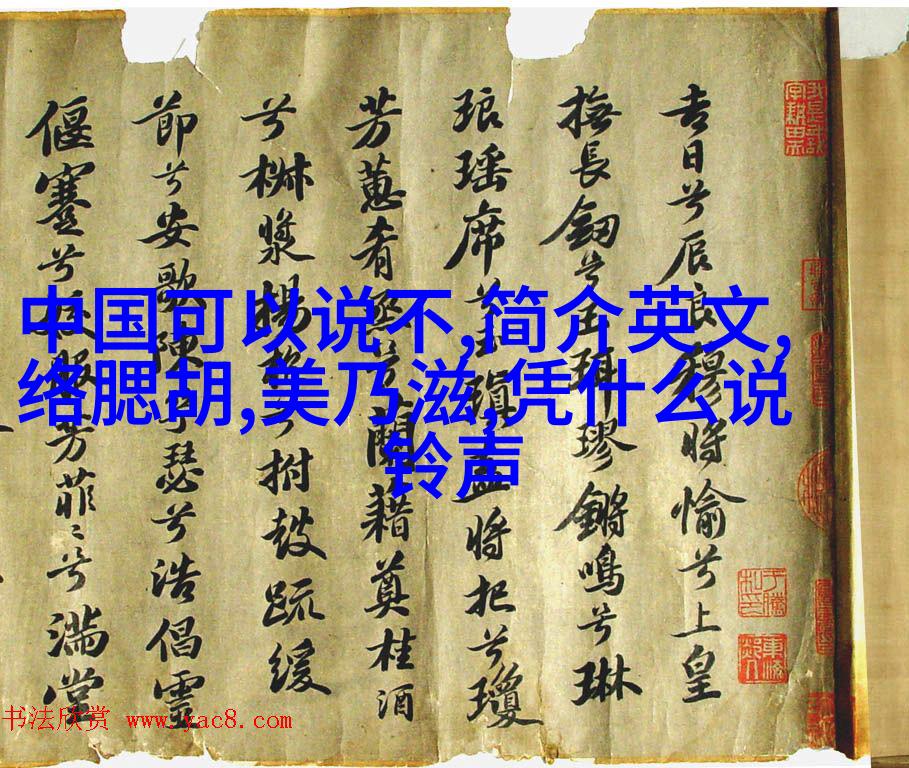 中国可以说不,简介英文,
络腮胡,美乃滋,凭什么说
铃声
吉日兮辰良穆將愉兮上皇
撫長釼兮玉珥璆鏘鳴兮琳
琅瑶席兮玉瑱盍將把兮瓊
芳蕙肴蒸兮蘭藉奠桂酒
兮椒漿揚兮拊鼓疏緩
節兮安歌陳兮瑟兮浩倡靈
偃蹇兮服芳菲〻兮滿堂
书法欣赏 www.yac8.com